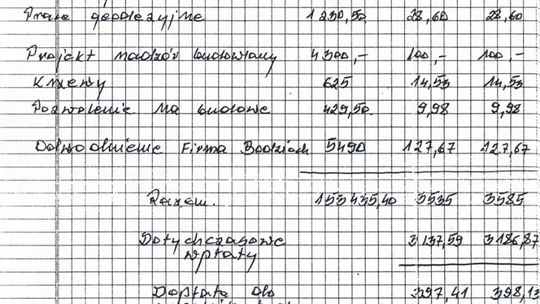 Prace geodezyjne 1230,50 28,60 28,60
Projekt nadzór budowlany 4300,- 100,- 100,-
Krzewy 625 14,53 14,53
Pozwolenie na budowę 429,50. 9,98 9,98
Odwodnienie Firma 5490 127,67 127,67
Razem. 153435,40 3535 3585
Dotychczasowe 3137,59 3186,87
wpłaty
Dopłata do 397,41 398,13